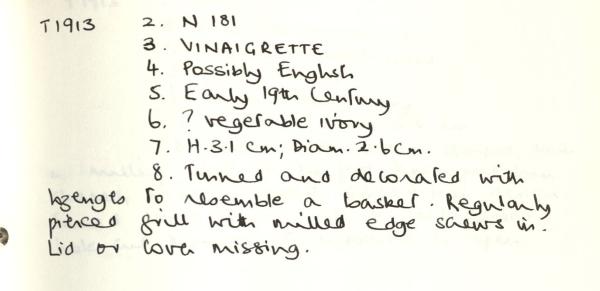 T1913 2. N 181
3. VINAIGRETTE
4. Possibly English
5. Early 19th Century
6. ? vegetable ivory
7. H.3.1 cm; Diam.2.6cm.
8. Turned and decorated with
lozenges to resemble a basket. Regularly
pierced grill with milled edge screws in.
Lid or cover missing.